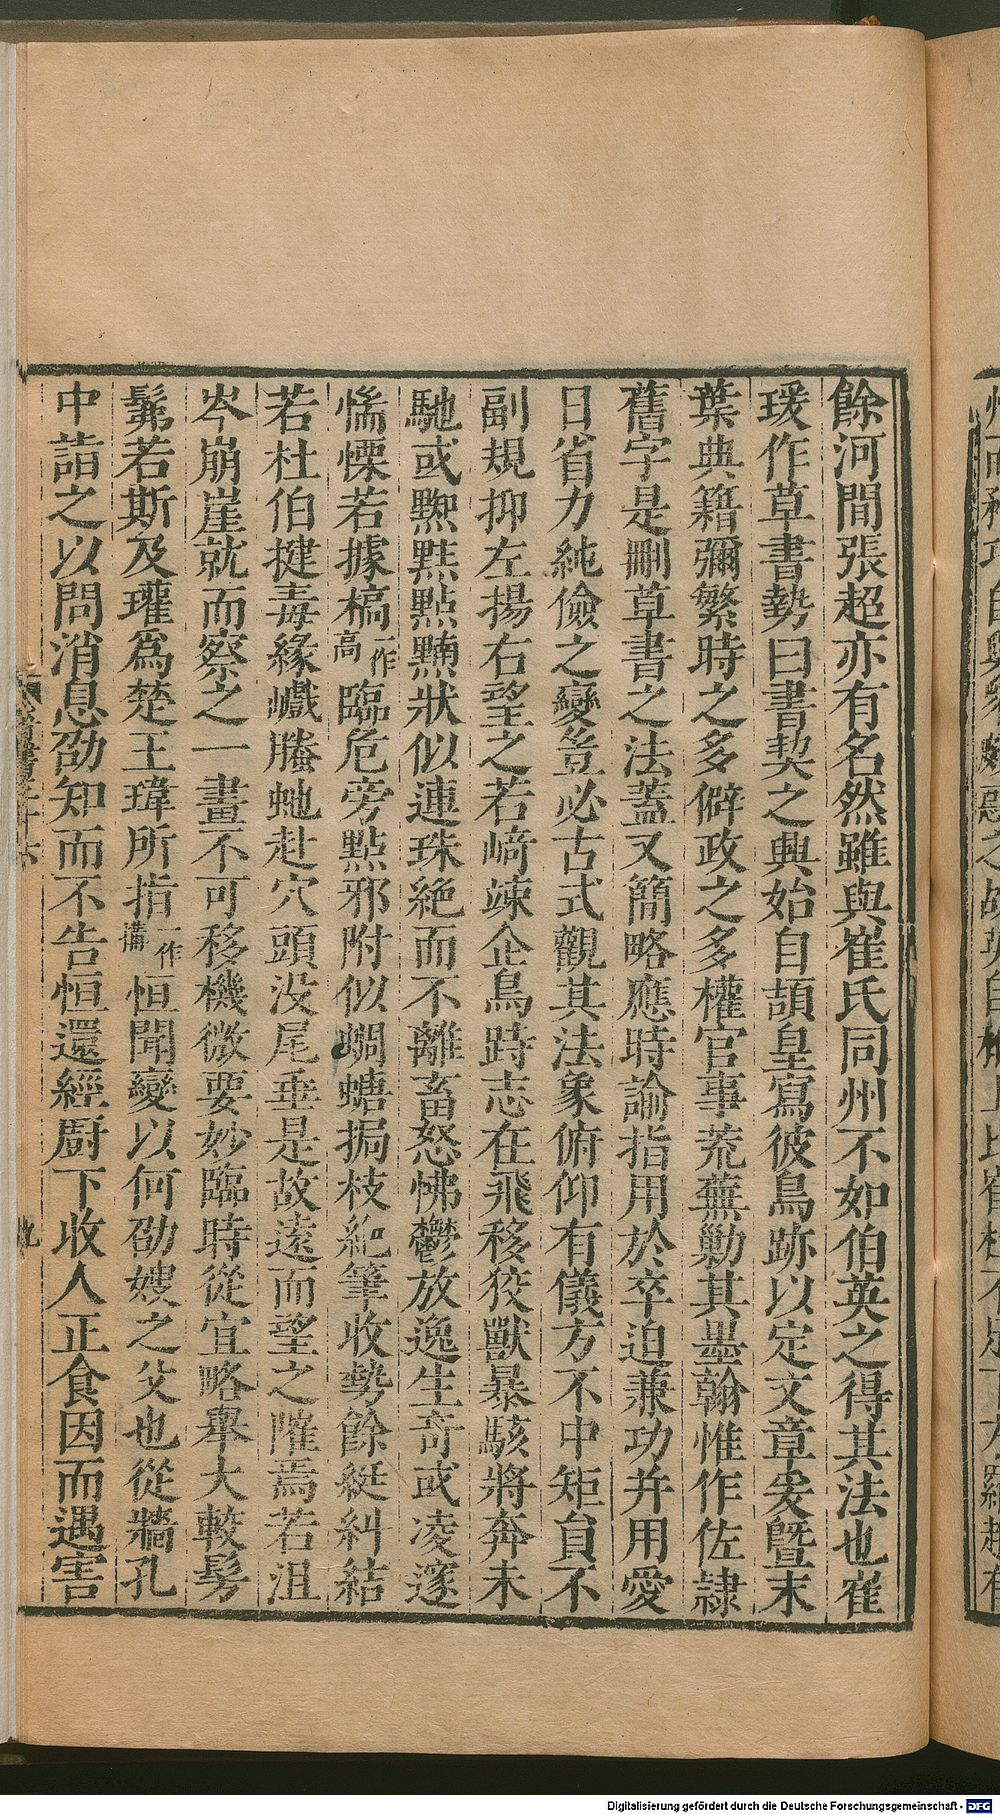 餘河間張超亦有名然雖與崔氏同州不如伯英之得其法也崔
瑗作草書勢曰書契之興始自頡皇寫彼鳥跡以定文章爰暨末
葉典籍彌繁時之多僻政之多權官事荒蕪勦其墨翰惟作佐隷
舊字是刪草書之法蓋又簡略應時諭指用於卒迫兼功并用愛
日省力純儉之變豈必古式觀其法象俯仰有儀方不中矩員不
副規抑左揚右望之若崎竦企鳥跱志在飛移狡獸暴駭將奔未
馳或𪐴點𪑜狀似連珠絕而不離畜怒怫鬱放逸生奇或凌邃
惴慄若據槁一作高臨危旁點邪附似蜩螗挶枝絕筆收勢餘綖糾結
若杜伯揵毒緣巇螣虵赴穴頭没尾垂是故遠而望之㠑焉若沮
岑崩崖就而察之一畫不可移機微要妙臨時從宜略舉大較髣
髴若斯及瓘爲楚王瑋所指一作搆恒聞變以何劭嫂之父也從牆孔
中詣之以問消息劭知而不告恒還經厨下收人正食因而遇害
晉書
九
Digitalisierung gefördert durch die Deutsche Forschungsgemeinschaft - DFG